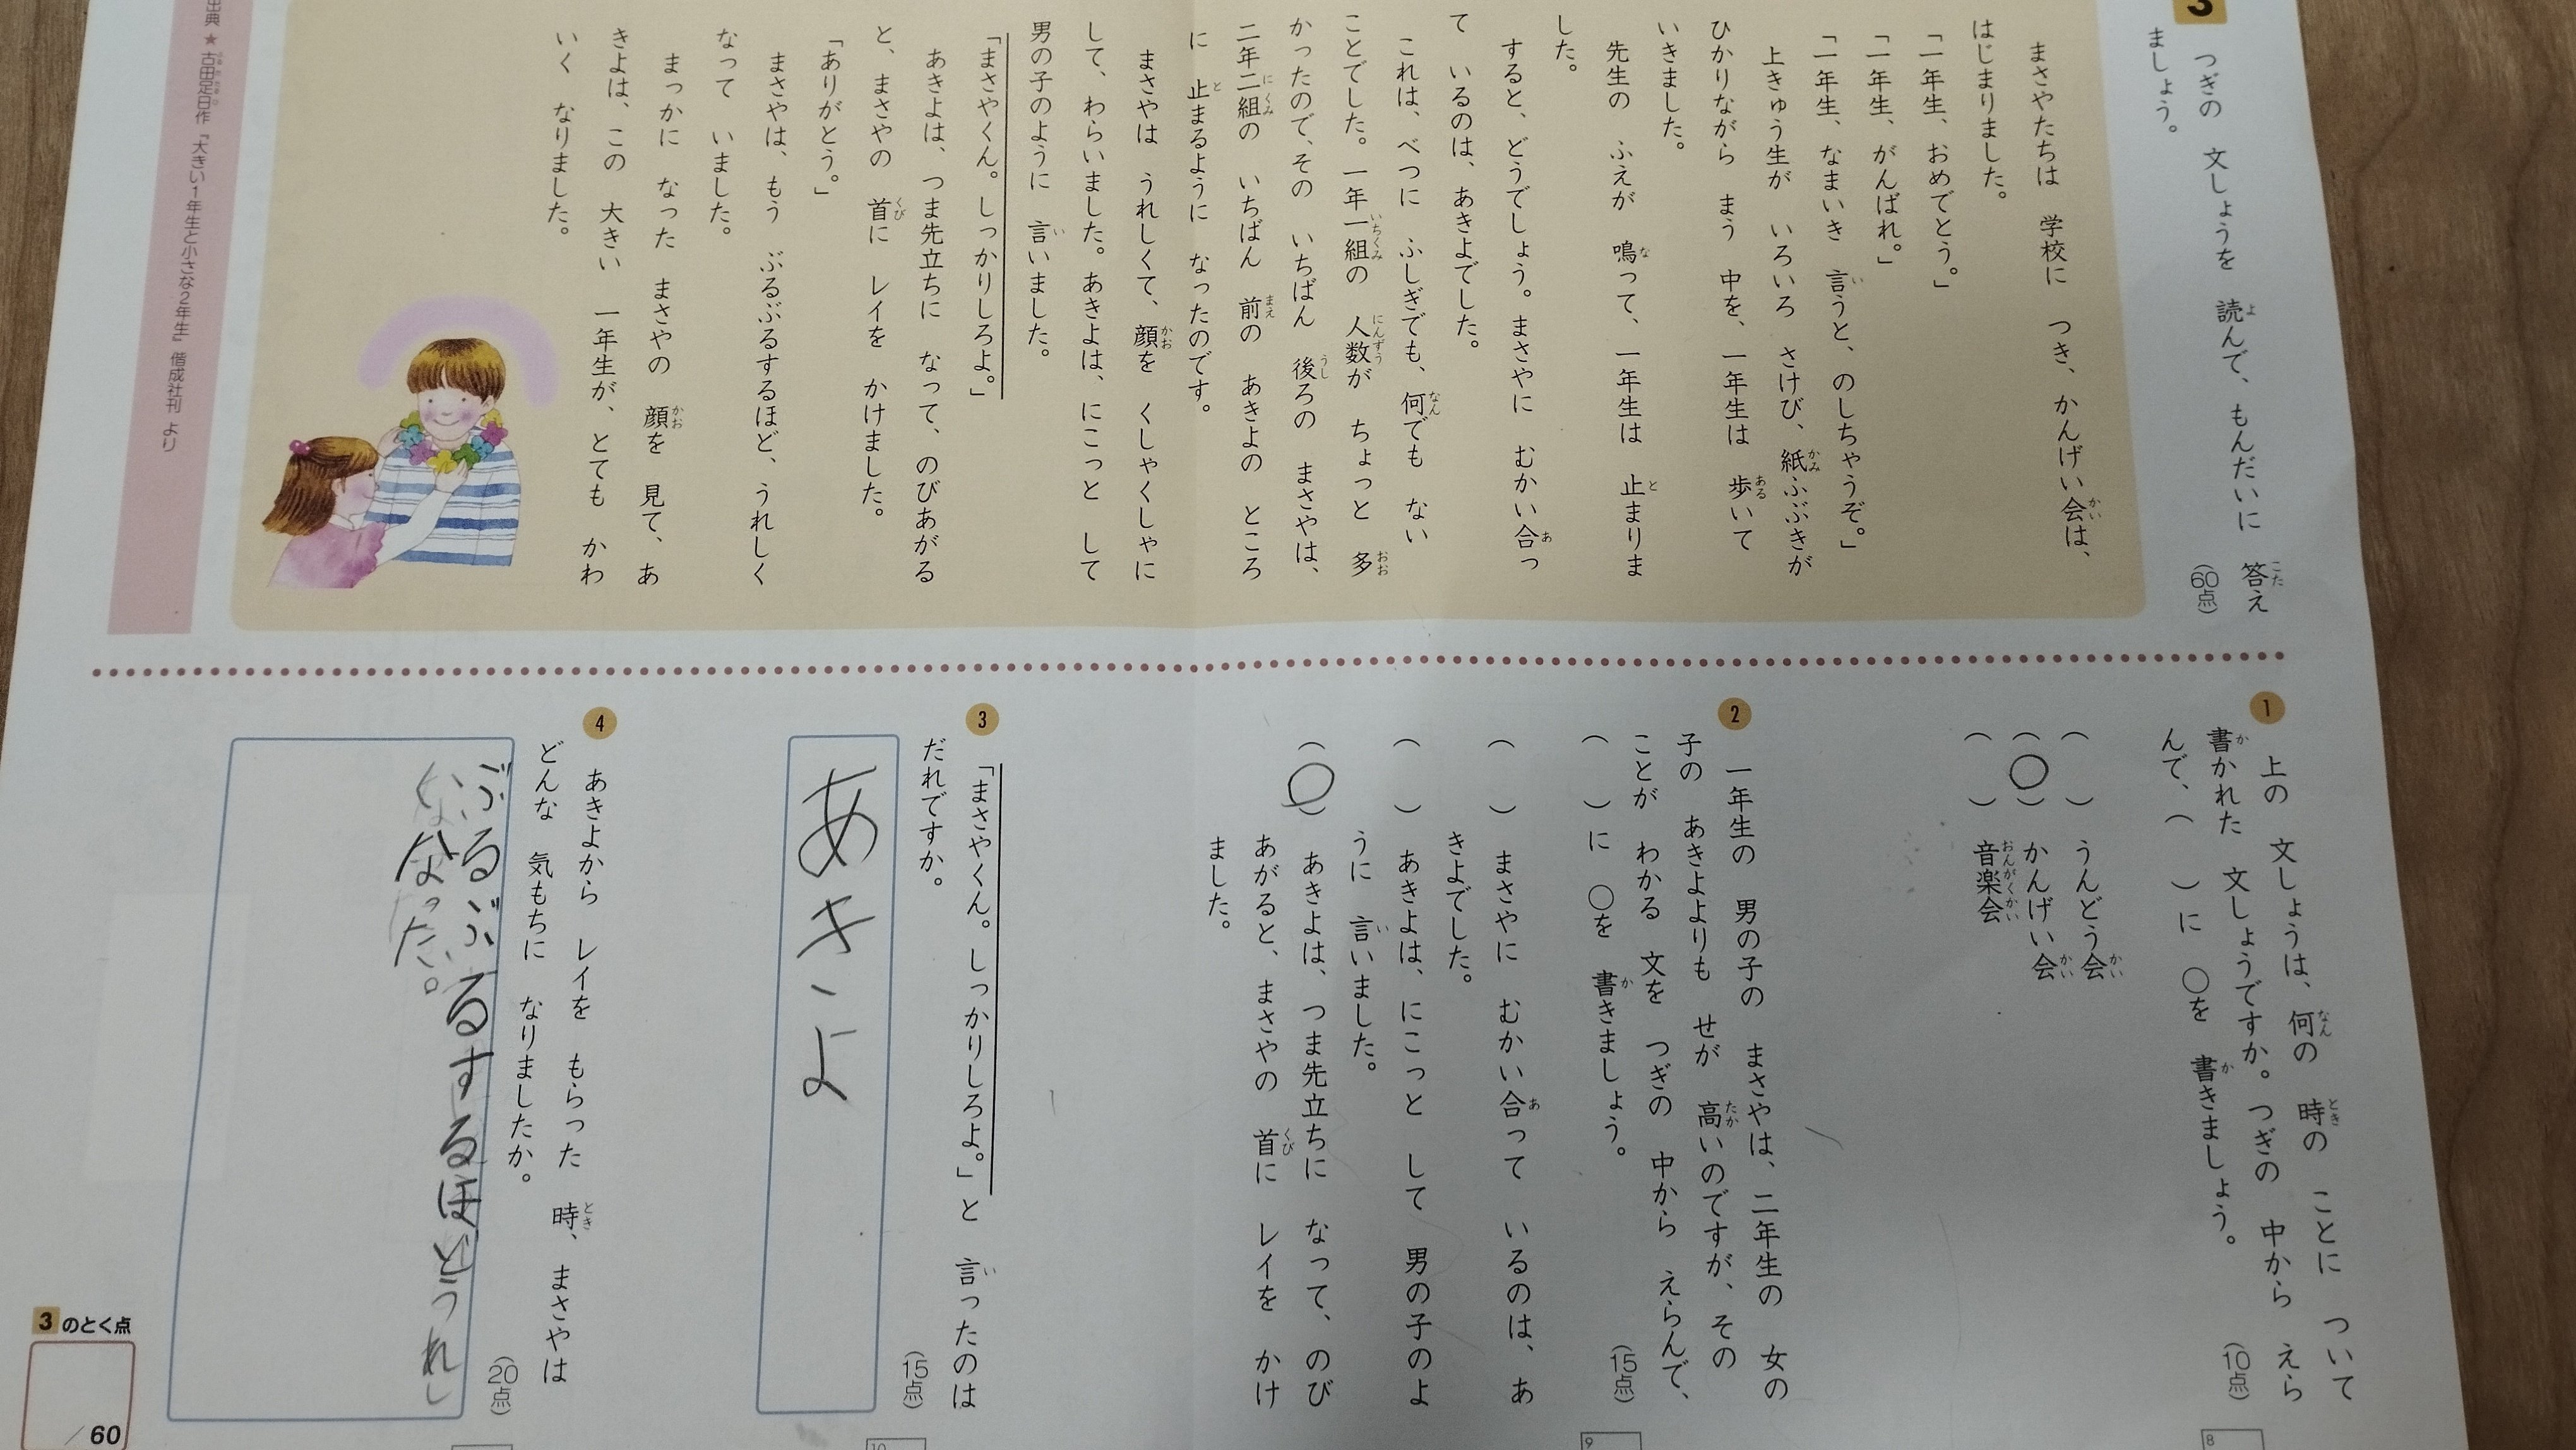 3
つぎの 文しょうを 読んで、もんだいに 答え
ましょう。
(60点)
まさやたちは 学校に つき、かんげい会は、
はじまりました。
「一年生、おめでとう。」
「一年生、がんばれ。」
「一年生、なまいき 言うと、のしちゃうぞ。」
上きゅう生が いろいろ さけび、紙ふぶきが
ひかりながら まう 中を、一年生は 歩いて
いきました。
先生の ふえが 鳴って、一年生は 止まりま
した。
すると、どうでしょう。まさやに むかい合っ
て いるのは、あきよでした。
これは、べつに ふしぎでも、何でも ない
ことでした。一年一組の 人数が ちょっと 多
かったので、その いちばん 後ろの まさやは、
二年二組の いちばん 前の あきよの ところ
に 止まるように なったのです。
まさやは うれしくて、顔を くしゃくしゃに
して、わらいました。あきよは、にこっと して
男の子のように 言いました。
「まさやくん。しっかりしろよ。」
あきよは、つま先立ちに なって、のびあがる
と、まさやの 首に レイを かけました。
「ありがとう。」
まさやは、もう ぶるぶるするほど、うれしく
なって いました。
まっかに なった まさやの 顔を 見て、あ
きよは、この 大きい 一年生が、とても かわ
いく なりました。
出典★古田足日作『大きい1年生と小さな2年生』偕成社刊 より
1
上の 文しょうは、何の 時の ことに ついて
書かれた 文しょうですか。つぎの 中から えら
んで、( )に ○を 書きましょう。
(10点)
( ) うんどう会
(○) かんげい会
( ) 音楽会
2
一年生の 男の子の まさやは、二年生の 女の
子の あきよよりも せが 高いのですが、その
ことが わかる 文を つぎの 中から えらんで、
( )に ○を 書きましょう。
(15点)
( ) まさやに むかい合って いるのは、あ
きよでした。
( ) あきよは、にこっと して 男の子のよ
うに 言いました。
(○) あきよは、つま先立ちに なって、のび
あがると、まさやの 首に レイを かけ
ました。
3
「まさやくん。しっかりしろよ。」と 言ったのは
だれですか。
(15点)
あきよ
4
あきよから レイを もらった 時、まさやは
どんな 気もちに なりましたか。
(20点)
ぶるぶるするほどうれし
くなった。
3のとく点
/60
8
9
10